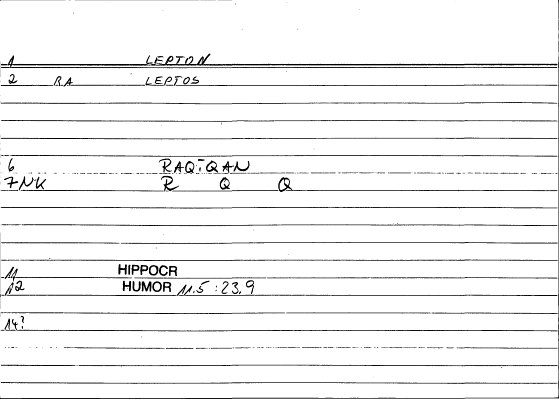 1 LEPTON
2 RA LEPTOS
6 RAQĪQAN
7NK R Q Q
11 HIPPOCR
12 HUMOR 11.5 : 23.9
14?